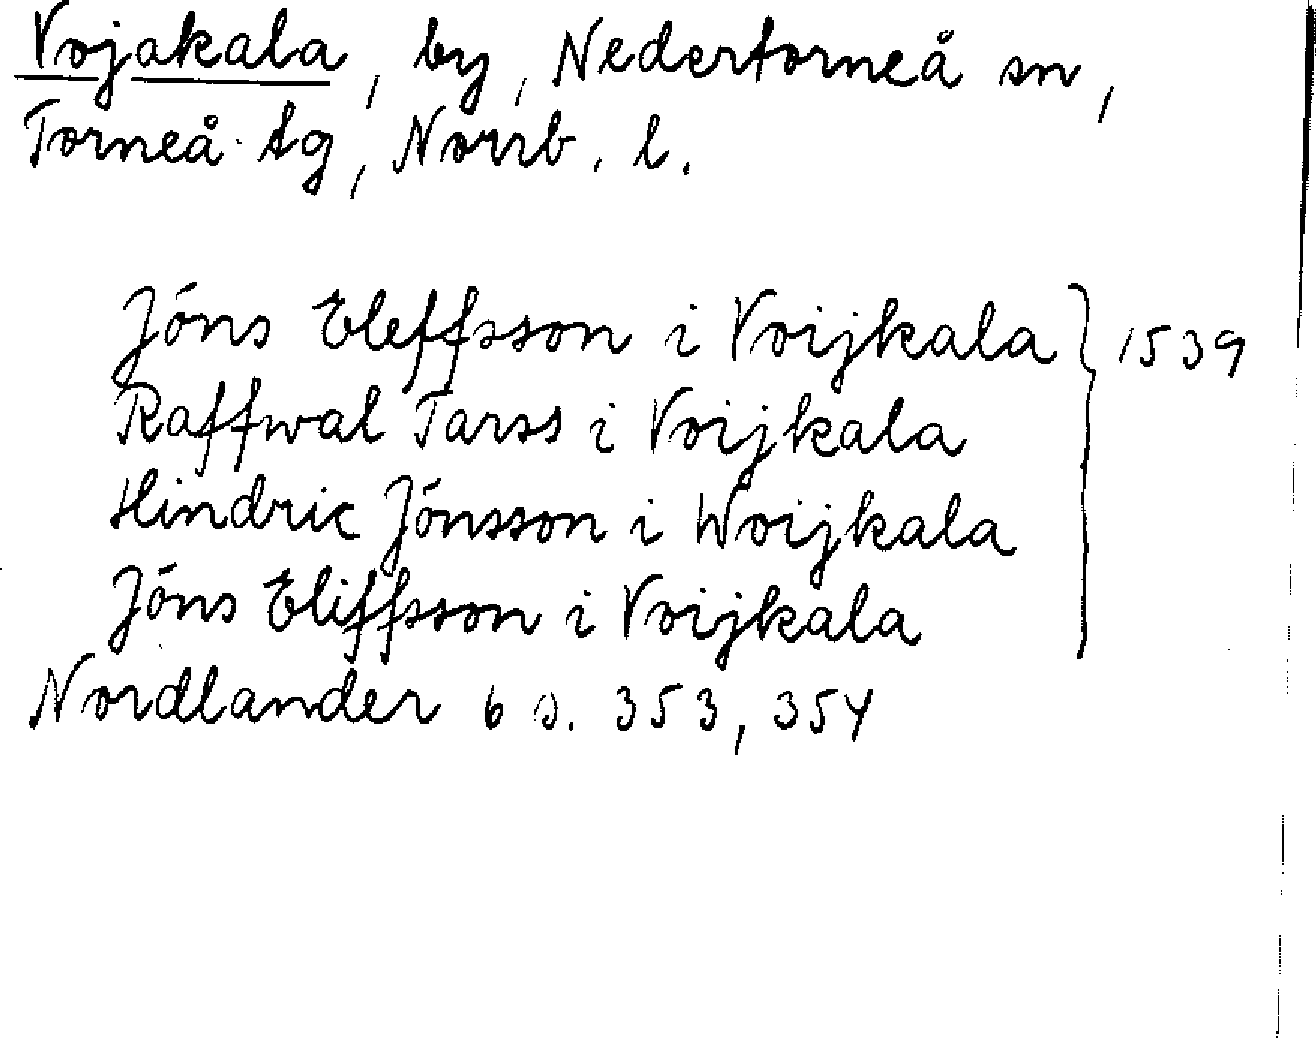 Vojakala, by, Nedertorneå sn,
Torneå tg, Norrb. l.
Jóns Eleffsson i Voijkala } 1539
Raffwal Tarss i Voijkala
Hindric Jónsson i Woijkala
Jóns Eliffsson i Voijkala
Nordlander 6 s. 353, 354